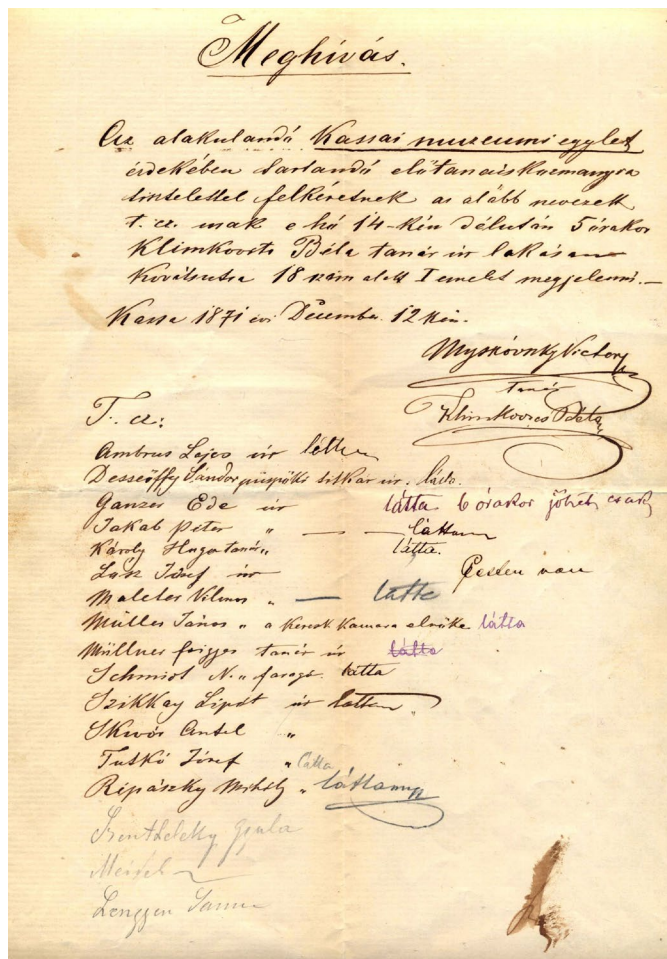 Meghívás.
Az alakulandó Kassai muzeumi egylet
érdekében tartandó előtanácskozmányra
tisztelettel felkéretnek az alább nevezett
t. cz. urak e hó 14-kén délután 5 órakor
Klimkovits Béla tanár úr lakásán
Kovátsutza 18 szám alatt I emelet megjelenni.—
Kassa 1871 évi December 12 kén.
Myskovszky Victor
tanár
Klimkovics Béla
T. cz:
Ambrus Lajos úr láttam
Dessewffy Sándor püspöki titkár úr. látta.
Ganzer Ede úr látta 6 órakor jöhet csak
Jakab Péter " — — láttam
Károly Hugo tanár " látta.
József úr Pesten van
Maleter Vilmos " — látta
Müller János " a keresk kamara elnöke látta
Müllner tanár úr látta
Schmidt N. " látta
Szikkay Lipót úr láttam
Antal "
Tutkó József " látta
Répászky Mihály " láttam
Szentleleky Gyula